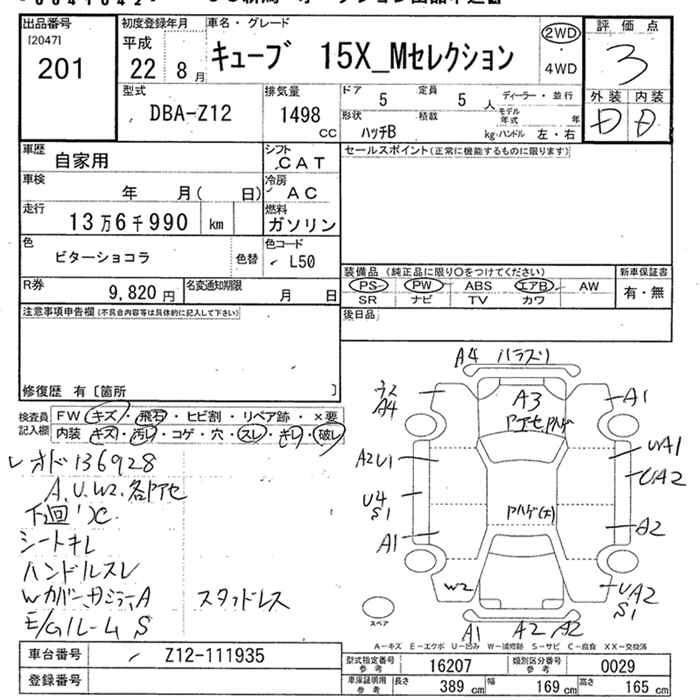 出品番号
[2047]
201
初度登録年月
平成
22年 8月
車名・グレード
キューブ 15X_Mセレクション
2WD
・
4WD
評価点
3
外装 内装
D D
型式
DBA-Z12
排気量
1498
CC
ドア 5
定員 5人
ディーラー・並行
形状 ハッチB
積載 kg
モデル年式 年
ハンドル 左・右
車歴 自家用
シフト CAT
セールスポイント(正常に機能するものに限ります)
車検 年 月( 日)
冷房 AC
走行 13万6千990 km
燃料 ガソリン
色 ビターショコラ
色替
色コード L50
装備品(純正品に限り○をつけてください)
PS PW ABS エアB AW
SR ナビ TV カワ
新車保証書
有・無
R券 9,820円
名変通知期限 月 日
後日品
注意事項申告欄(不具合内容等は具体的に記入して下さい)
修復歴 有〔箇所 〕
検査員記入欄
FW キズ・飛石・ヒビ割・リペア跡・×要
内装 キズ・汚レ・コゲ・穴・スレ・キレ・破レ
オド136928
A.U.W2.各Pアセ
下回りC
シートキレ
ハンドルスレ
WカバーサミラーA スタッドレス
E/Gルーム S
A4 ハラスリ
ウス
A4
A3
Pアセ.Pハゲ
A1
A2U1
UA1
UA2
U4
S1
Pハゲ(大)
A1
A2
W2
UA2
S1
スペア
A1 A2 A2
A-キズ E-エクボ U-凹み W-補修跡 S-サビ C-腐食 XX-交換済
車台番号 Z12-111935
登録番号
型式指定番号 参考 16207
類別区分番号 参考 0029
車庫証明用 参考 長さ 389cm 幅 169cm 高さ 165cm